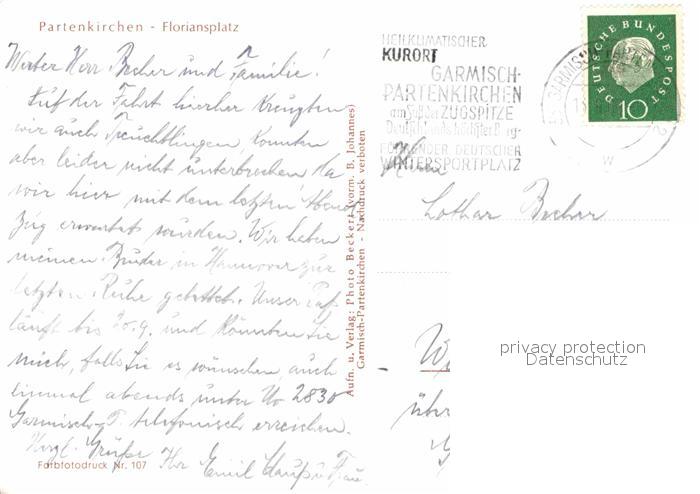 Partenkirchen - Floriansplatz
Werter Herr Becher und Familie!
Auf der Fahrt hierher kreuzten
wir auch Treuchtlingen, konnten
aber leider nicht unterbrechen da
wir hier mit dem letzten Abend
zug erwartet wurden. Wir haben
meinen Bruder in Hannover zur
letzten Ruhe gebettet. Unser
läuft bis 20.9. und könnten Sie
mich, falls Sie es wünschen, auch
einmal abends unter No 2830
Garmisch-P. telefonisch erreichen.
Herzl. Grüße Ihr Emil u Frau
Farbfotodruck Nr. 107
Aufn. u. Verlag: Photo Beckert (vorm. B. Johannes)
Garmisch-Partenkirchen - Nachdruck verboten
HEILKLIMATISCHER
KURORT
GARMISCH-
PARTENKIRCHEN
am Fuß der ZUGSPITZE
Deutschlands höchster Berg
FÜHRENDER DEUTSCHER
WINTERSPORTPLATZ
GARMISCH-PARTENKIRCHEN
2
w
DEUTSCHE BUNDESPOST
10
Herrn
Lothar Becher
W
über
privacy protection
Datenschutz